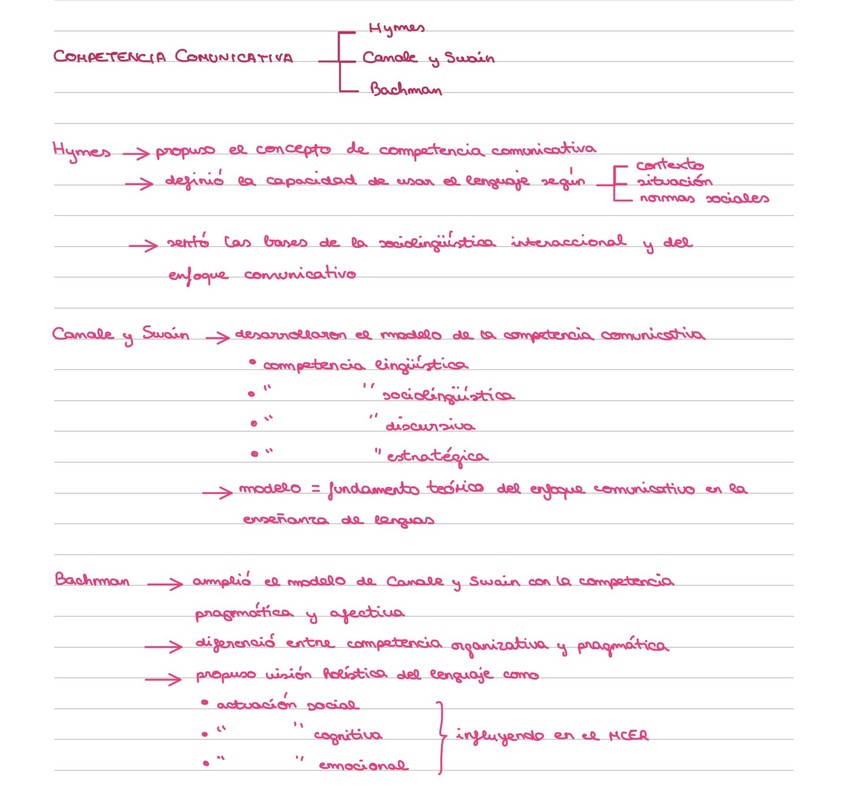 Hymes
COMPETENCIA COMUNICATIVA Canale y Swain
Bachman
Hymes → propuso el concepto de competencia comunicativa
contexto
→ definió la capacidad de usar el lenguaje según situación
normas sociales
→ sentó las bases de la sociolingüística interaccional y del
enfoque comunicativo
Canale y Swain → desarrollaron el modelo de la competencia comunicativa
• competencia lingüística
• " " sociolingüística
• " " discursiva
• " " estratégica
→ modelo = fundamento teórico del enfoque comunicativo en la
enseñanza de lenguas
Bachman → amplió el modelo de Canale y Swain con la competencia
pragmática y afectiva
→ diferenció entre competencia organizativa y pragmática
→ propuso visión holística del lenguaje como
• actuación social
• " " cognitiva } influyendo en el MCER
• " " emocional